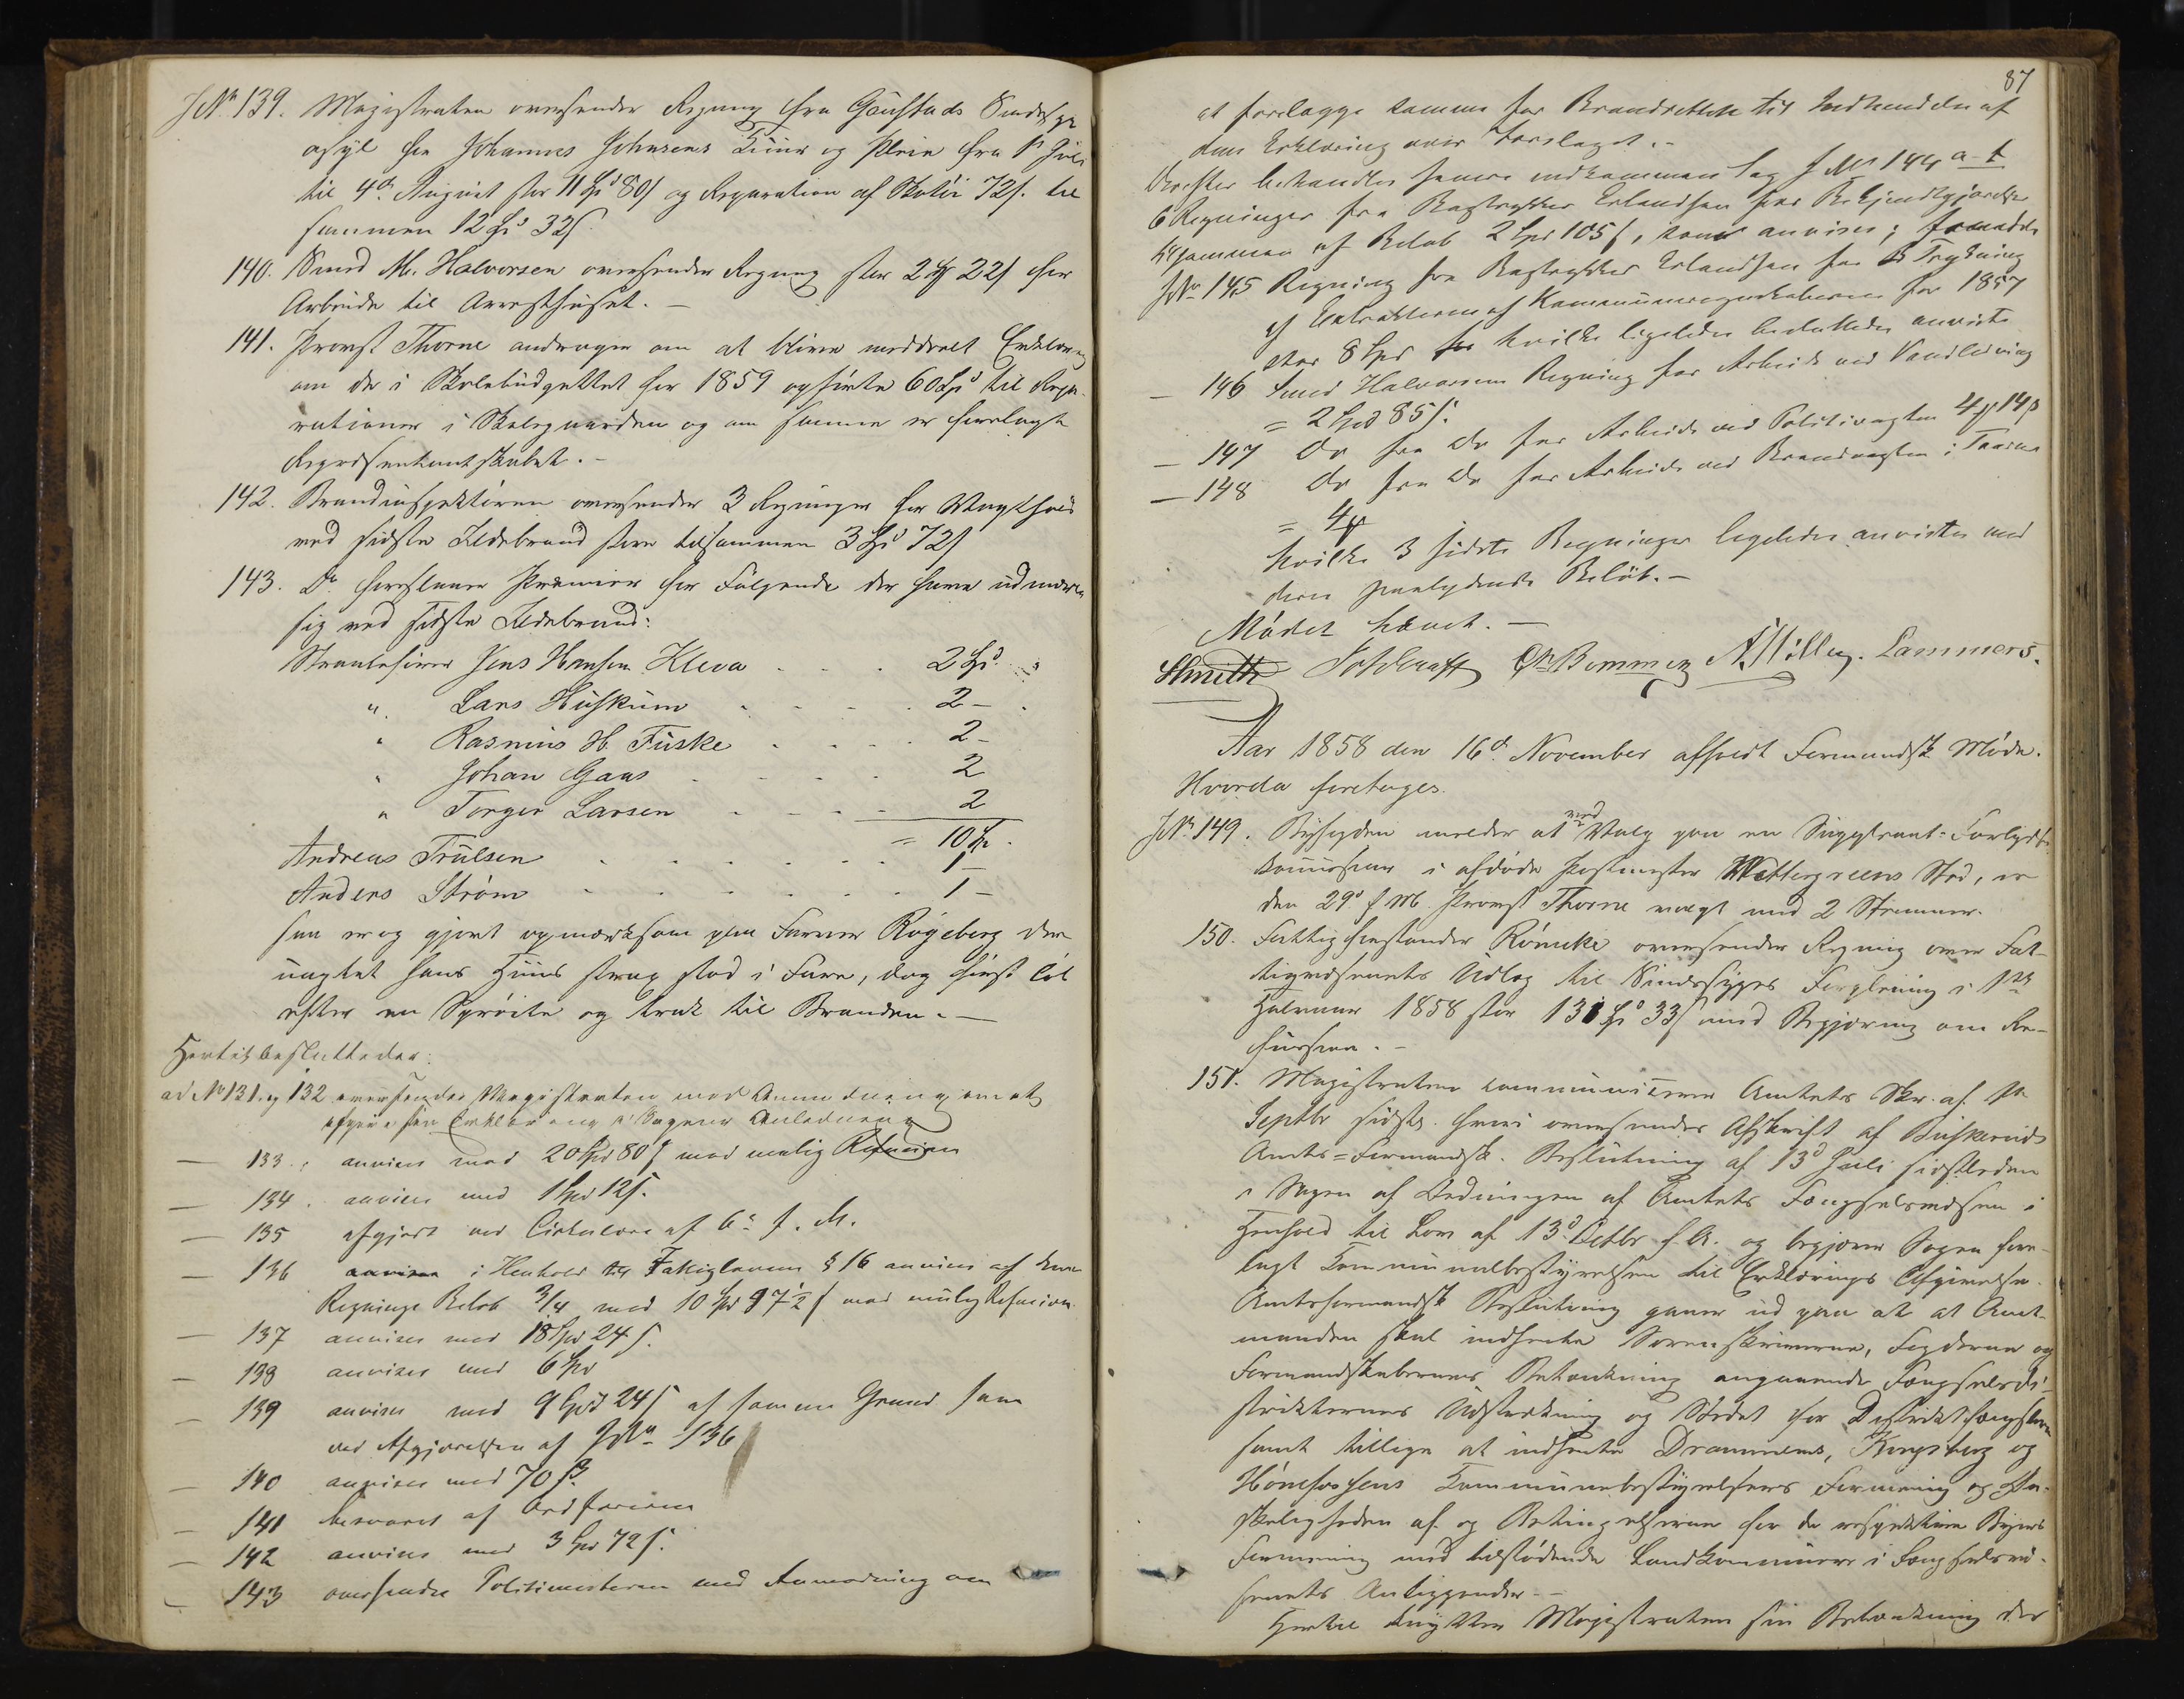 JNo 139. Magistraten oversender Regning fra Gaustads Sindssyge
asyl for Johannes Johnsens Kuur og Pleie fra 1 Juli
til 4de August stor 11 Spd 80 s og Reparation af Skotöi 72 s. til
sammen 12 Spd 32 s
140. Smed M. Halvorsen oversender Regning stor 2 Spd 22 s for
Arbeide til Arresthuset. –
141. Provst Thorne andrager om at blive meddeelt Erklæring
om de i Skolebudgettet for 1859 opförte 60 Spd til Repa-
rationer i Skolegaarden og om samme er forelagt
Repræsentantskabet. –
142. Brandinspektören oversender 3 Regninger for Vagthold
ved sidste Ildebrand store tilsammen 3 Spd 72 s
143. Do foreslaaer Præmier for Fölgende der have udmærket
sig ved sidste Ildebrand:
Straalefører Jens Hansen Kleva . . . 2 Spd "
" Lars Huskum . . . . 2 –
" Rasmus H. Fuske . . . . 2 –
" Johan Gaas . . . . 2
" Torger Larsen . . . . 2
= 10 Sp.
Andreas Trulsen . . . . . . 1 –
Anders Ström . . . . . . 1 –
han er og gjort opmærksom paa Farver Rögeberg der
uagtet hans Huus strax stod i Fare, dog först löb
efter en Spröite og trak til Branden. –
Hertil besluttedes:
ad No 131 og 132 oversendes Magistraten med Anmodning om at
afgive sin Erklæring i Sagens Anledning
– 133. anvises med 20 Spd 80 s mod mulig Refusion
– 134. anvises med 1 Spd 12 s.
– 135 afgjort ved Cirkulære af 6te f. M.
– 136 anvises i Henhold til Fattiglovens § 16 anvises af denne
Regnings Beløb 3/4 med 10 Spd 97½ s mod mulig Refusion
– 137 anvises med 18 Spd 24 s.
– 138 anvises med 6 Spd
– 139 anvises med 9 Spd 24 s af samme Grund som
ved Afgjørelsen af JNo 136
– 140 anvises med 70 s.
– 141 besvaret af Ordføreren
– 142 anvises med 3 Spd 72 s.
– 143 oversendes Politimesteren med Anmodning om
87
at forelægge samme for Brandretten til Indhentelse af
dens Erklæring over Forslaget. –
Derefter behandles senere indkommen Sag JNo 144 a–f
6 Regninger fra Bogtrykker Erlandsen for Bekjendtgjørelser
tilsammen af Beløb 2 Spd 105 s, som anvises;
JNo 145 Regning fra Bogtrykker Erlandsen for Trykning
af Extrakterne af Kommuneregnskaberne for 1857
stor 8 Spd hvilke ligeledes besluttedes anviste
– 146 Smed Halvorsens Regning for Arbeide ved Vandledning
= 2 Spd 85 s.
– 147 Do fra Do for Arbeide ved Politivagten 4 Spd 14 s
– 148 Do fra Do for Arbeide ved Brandvagten i Taarnet
= 4 Spd
hvilke 3 sidste Regninger ligeledes anvistes med
deres paalydende Beløb. –
Mödet hævet. –
Smith Ch Bommen A. Möller. Lammers.
Aar 1858 den 16de November afholdt Formandsk. Möde.
Hvorda foretoges.
JNo 149. Byfogden melder at ved Valg paa en Suppleant-Forligels
kommissær i afdöde Postmester Wettergreens Sted, er
den 29de f. M. Provst Thorne valgt med 2 Stemmer.
150. Fattigforstander Römcke oversender Regning over Fat-
tigvæsenets Udlæg til Sindssyges Forpleining i 1ste
Halvaar 1858 stor 131 Spd 33 s med Begjæring om Re-
fusion. –
151. Magistraten kommunicerer Amtets Skr. af
Septbr sidstl. hvori oversendes Afskrift af Buskeruds
Amts-Formandsk. Beslutning af 13de Juli sidstleden
i Sagen af Ordningen af Amtets Fængselsvæsen i
Henhold til Lov af 13de Octbr f. A. og begjærer Sagen fore-
lagt Kommunalbestyrelsen til Erklærings Afgivelse.
Amtsformandsk Beslutning gaaer ud paa at at Amt-
manden skal indhente Sorenskriverne, Fogderne og
Formandskabernes Betænkning angaaende Fængselsdi-
strikternes Udstrækning og Stedet for Distriktsfængslerne
samt tillige at indhente Drammens, Kongsberg og
Hönefossens Kommunebestyrelsers Formening og
skeligheden af og Betingelserne for de respektive Byers
Forening med tilstödende Landkommuner i Fængselsvæ-
senets Anliggender. –
Hertil knytter Magistraten sin Betænkning der